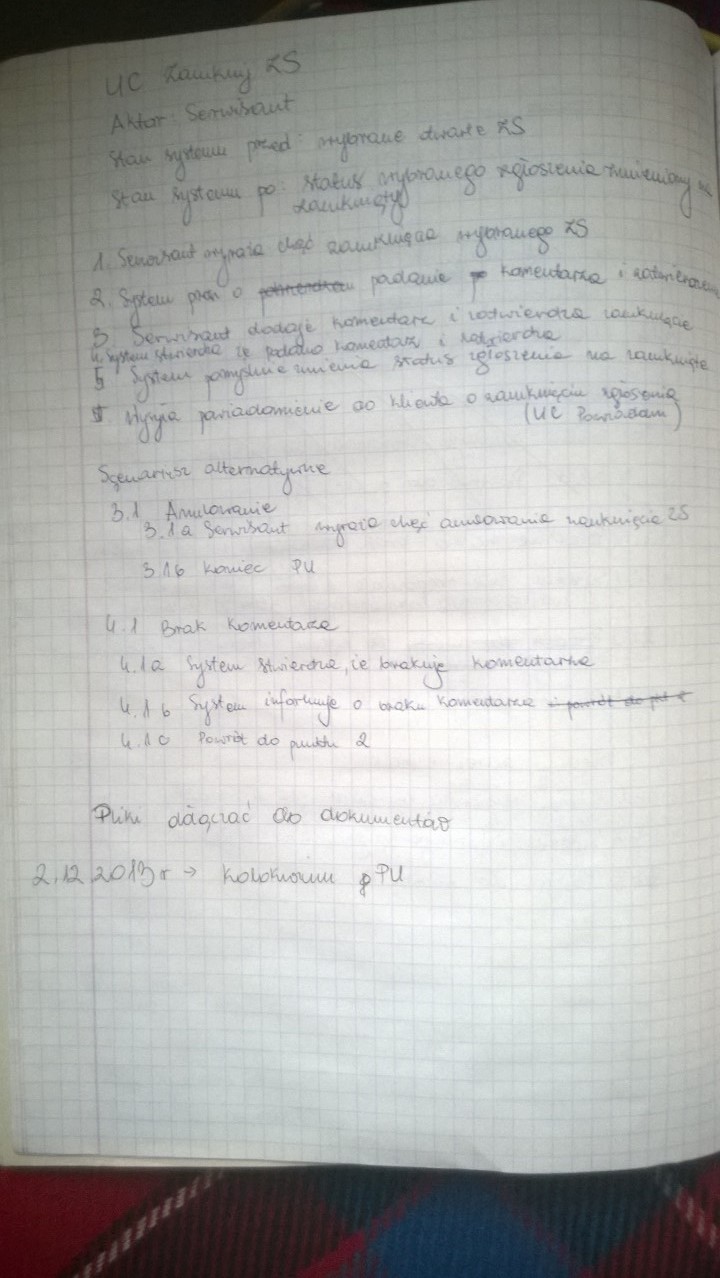 UC Zamknij ZS
Aktor: Serwisant
Stan systemu przed: wybrane otwarte ZS
Stan systemu po: status wybranego zgłoszenia zmieniony na
zamknięty
1. Serwisant wyraża chęć zamknięcia wybranego ZS
2. System prosi o potwierdzenie podanie komentarza i zatwierdzenie
3. Serwisant dodaje komentarz i zatwierdza zamknięcie
4. System stwierdza że podano komentarz i
5 System pomyślnie zmienia status zgłoszenia na zamknięte
Wysyła powiadomienie do klienta o zamknięciu zgłoszenia
(UC Powiadom)
Scenariusz alternatywne
3.1 Anulowanie
3.1a Serwisant wyraża chęć anulowania zamknięcia ZS
3.1b Koniec PU
4.1 Brak komentarza
4.1a System stwierdza, że brakuje komentarza
4.1b System informuje o braku komentarza i powrót do pkt
4.1c Powrót do punktu 2
Pliki dołączać do dokumentów
2.12.2013r → kolokwium PU